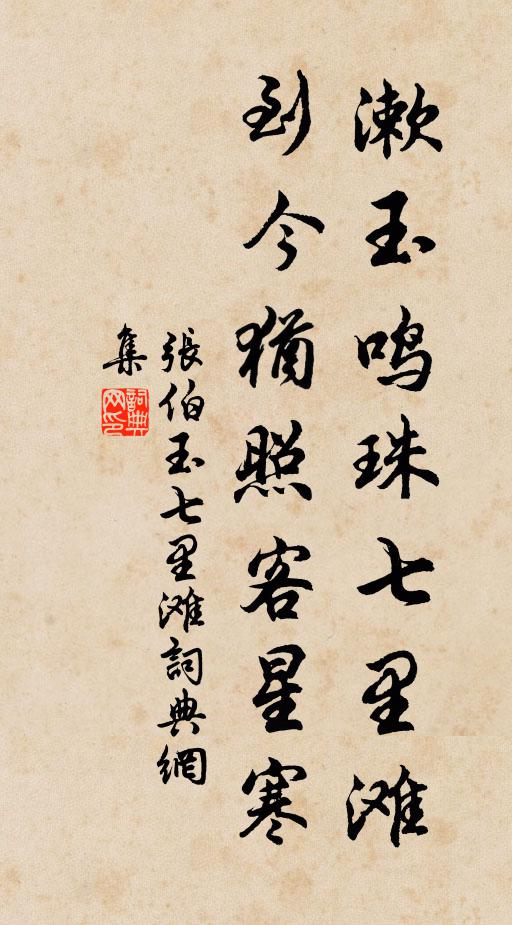 漱玉鸣珠七里滩
到今猶照客星寒
張伯玉七里滩詞典網
集
詞典
网印